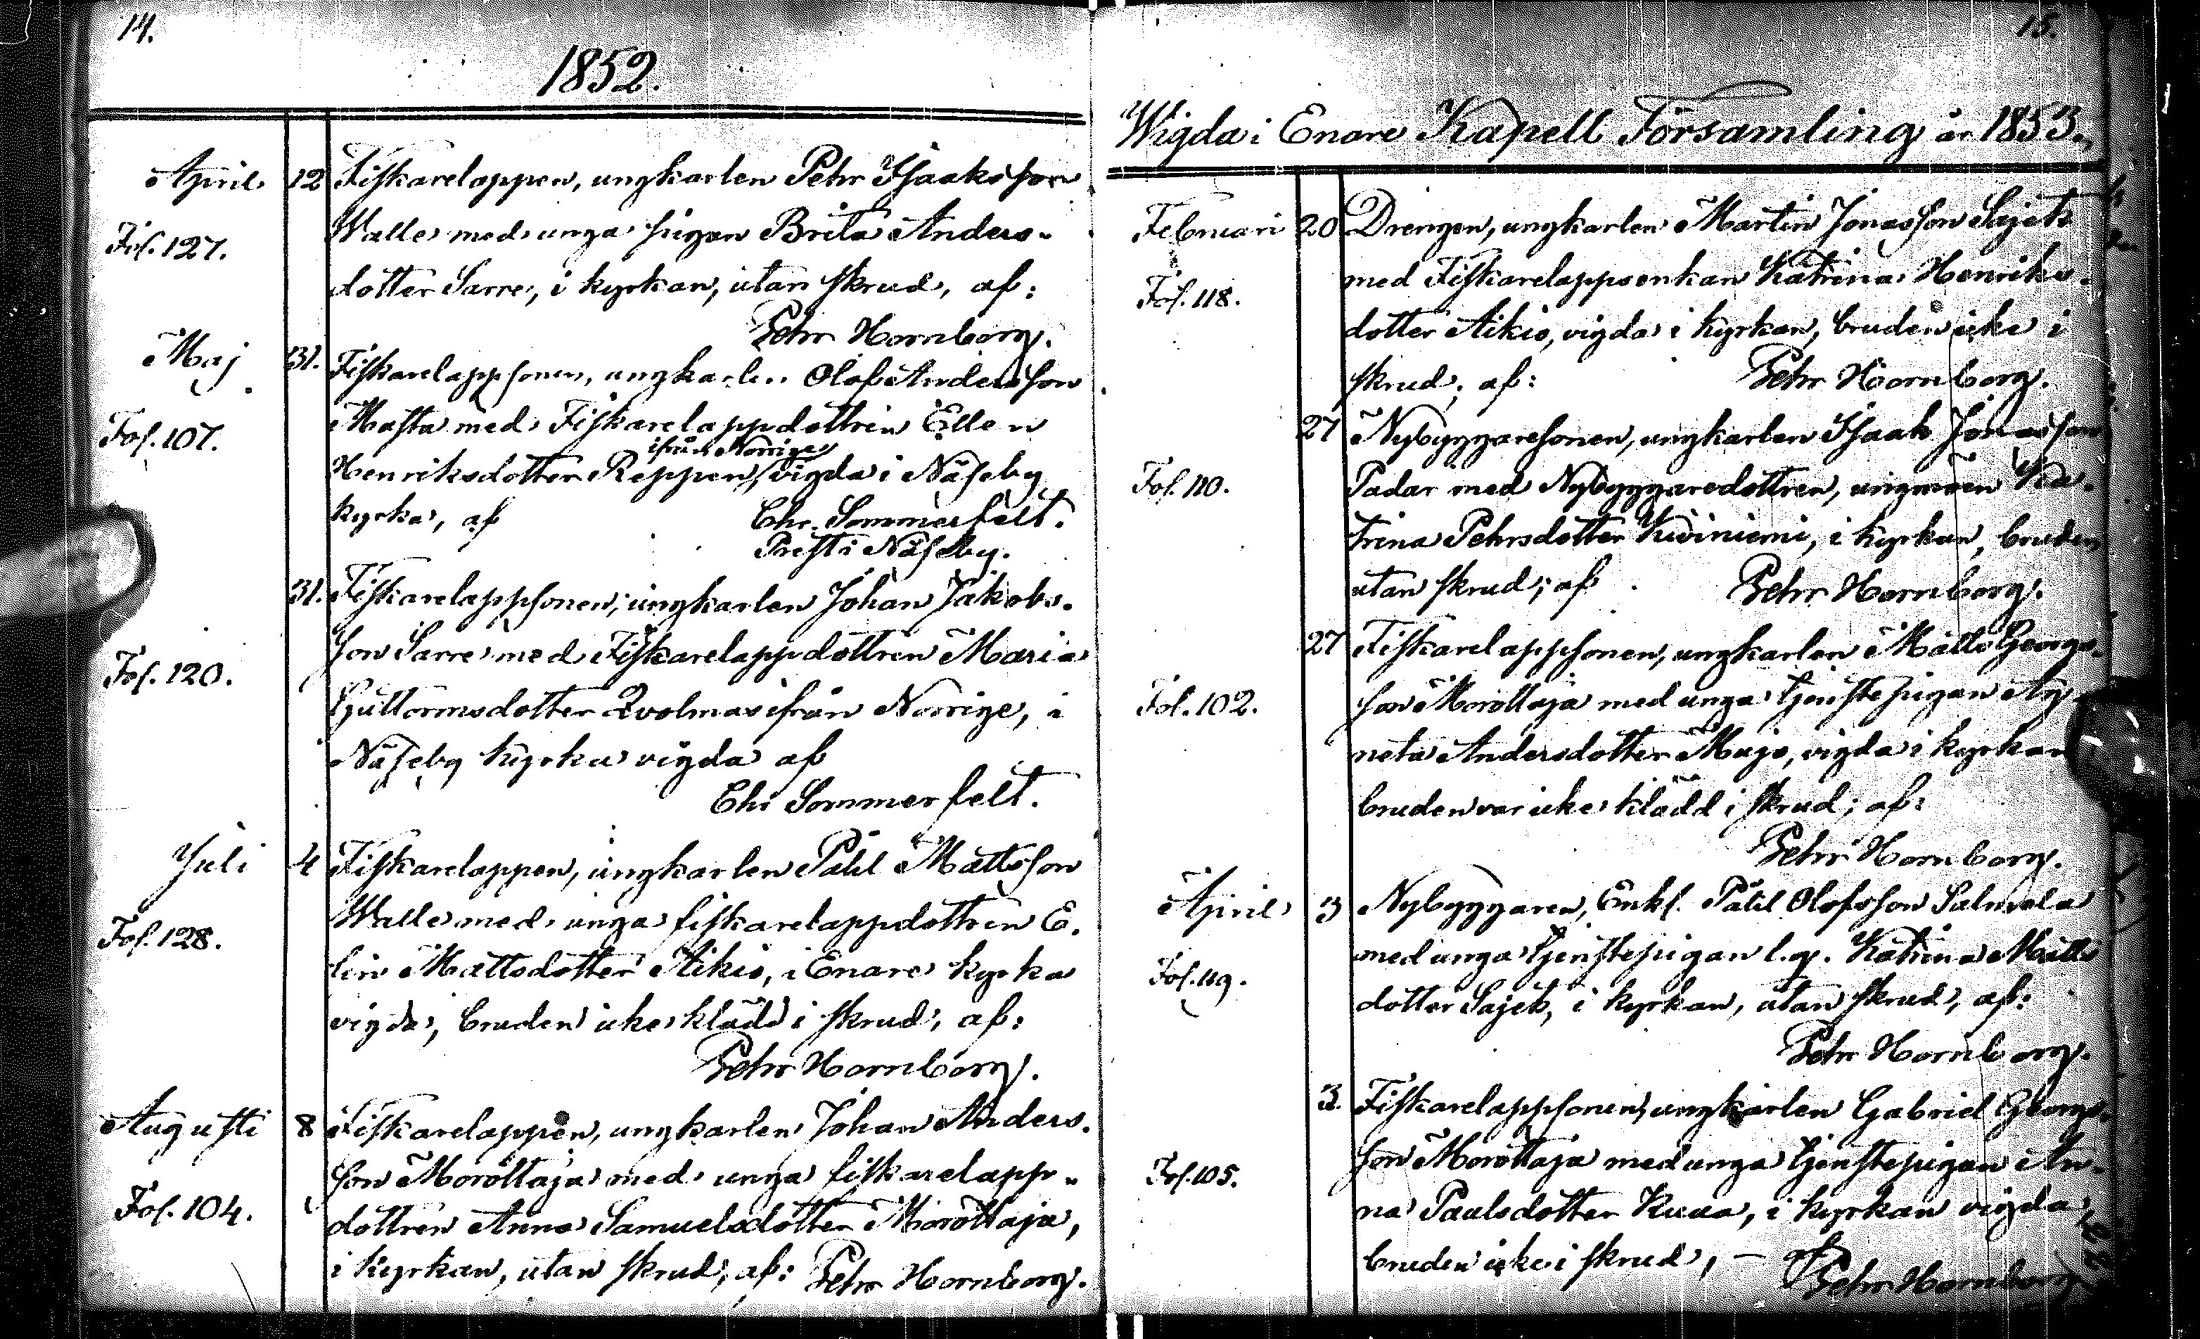 14.
1852.
April 12 Fiskarelappen, ungkarlen Pehr Isaaksson
Fol. 127. Walle med unga pigan Brita Anders-
dotter Sarre, i kyrkan, utan skrud, af:
Pehr Hornborg.
Maj 31. Fiskarelappsonen, ungkarlen Olof Andersson
Fol. 107. Masta med Fiskarelappdottren Ellen
ifrån Norrige
Henriksdotter Reppen, vigda i Näseby
kyrka, af Chr. Sommerfelt.
Prest i Näseby.
31. Fiskarelappsonen, ungkarlen Johan Jakobs-
Fol. 120. son Sarre med Fiskarelappdottren Maria
Guttormsdotter Qvolmas ifrån Norrige, i
Näseby kyrka vigda af
Chr Sommerfelt.
Juli 4 Fiskarelappen, ungkarlen Påhl Mattsson
Fol. 128. Walle med unga fiskarelappdottren E-
lin Mattsdotter Aikio, i Enare kyrka
vigda, bruden icke klädd i skrud, af:
Pehr Hornborg.
Augusti 8 Fiskarelappen, ungkarlen Johan Anders-
Fol. 104. son Morottaja med unga fiskarelapp-
dottren Anna Samuelsdotter Morottaja,
i kyrkan, utan skrud, af: Pehr Hornborg.
15.
Wigda i Enare Kapell Församling år 1853.
Februari 20 Drengen, ungkarlen Martin Jonasson Sajets
Fol. 118. med Fiskarelappsenkan Katrina Henriks-
dotter Aikio, vigda i kyrkan, bruden icke i
skrud, af: Pehr Hornborg.
27 Nybyggaresonen, ungkarlen Isaak Jonasson
Fol. 110. Padar med Nybyggaredottren, ungmön Ka-
trina Pehrsdotter Kiviniemi, i kyrkan, bruden
utan skrud; af Pehr Hornborg.
27 Fiskarelappsonen, ungkarlen Matts Georgs-
Fol. 102. son Morottaja med unga tjenstepigan Ag-
neta Andersdotter Mujo, vigda i kyrkan
bruden var icke klädd i skrud; af:
Pehr Hornborg.
April 3 Nybyggaren, Enkl. Påhl Olofsson Salmela
Fol. 119. med unga tjenstepigan l.q. Katrina Matts
dotter Sajets, i kyrkan, utan skrud, af:
Pehr Hornborg.
3. Fiskarelappsonen, ungkarlen Gabriel Georgs-
Fol. 105. son Morottaja med unga tjenstepigan An-
na Paulsdotter Kuua, i kyrkan vigda,
bruden icke i skrud, — af
Pehr Hornborg